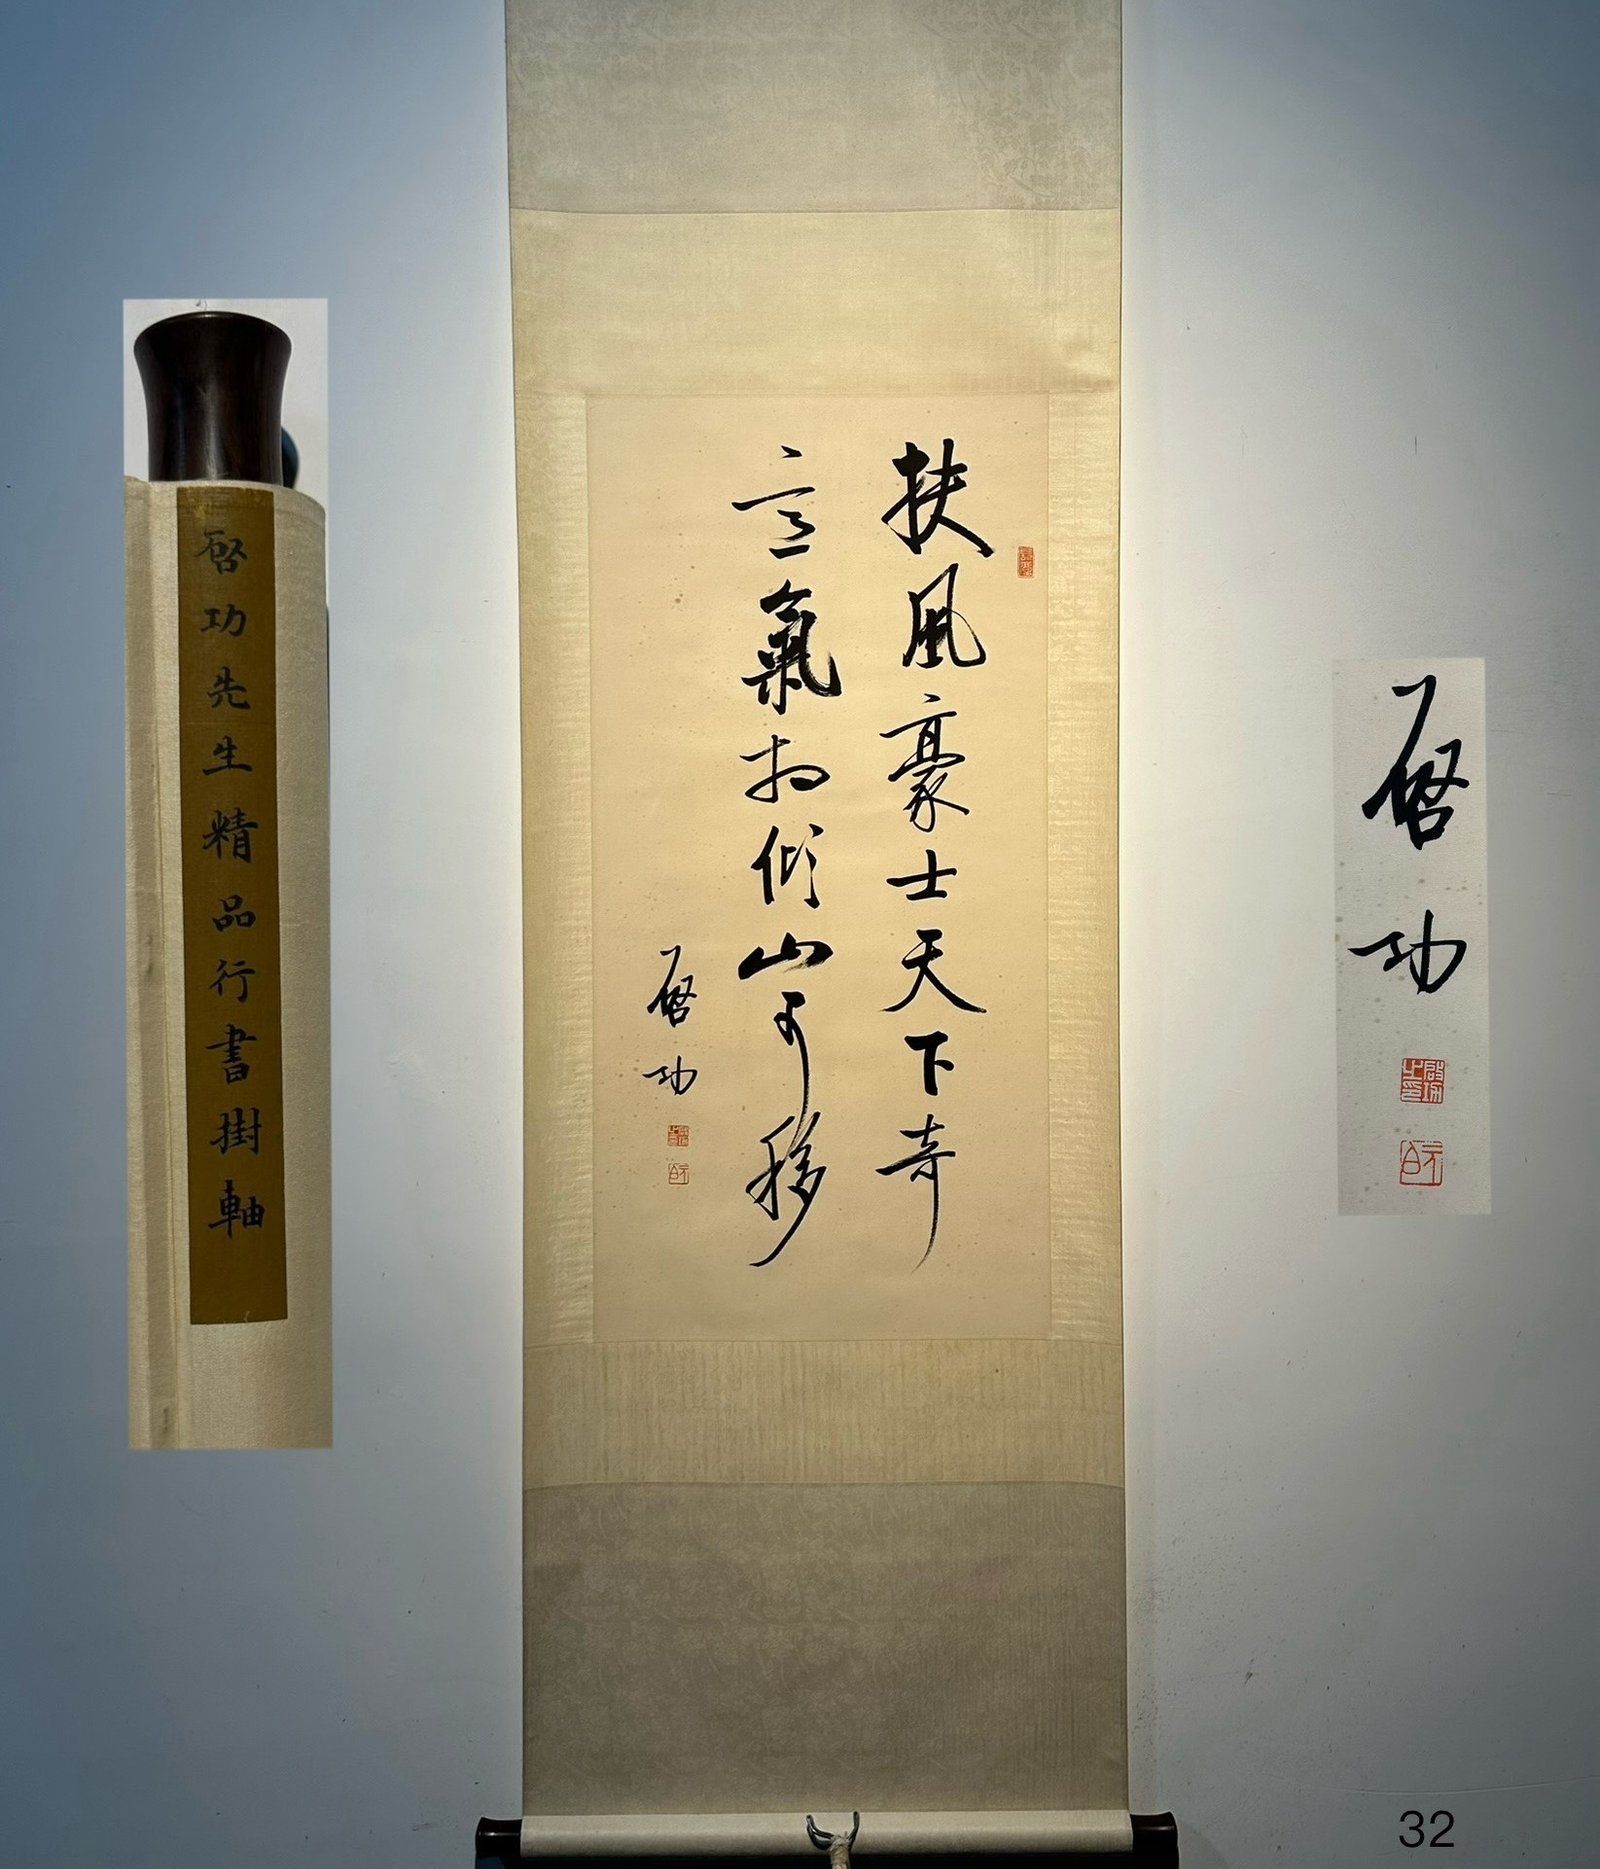 扶風豪士天下奇
意氣相傾山可移
啓功
啓功先生精品行書掛軸
啓功
啓功之印
元白
32